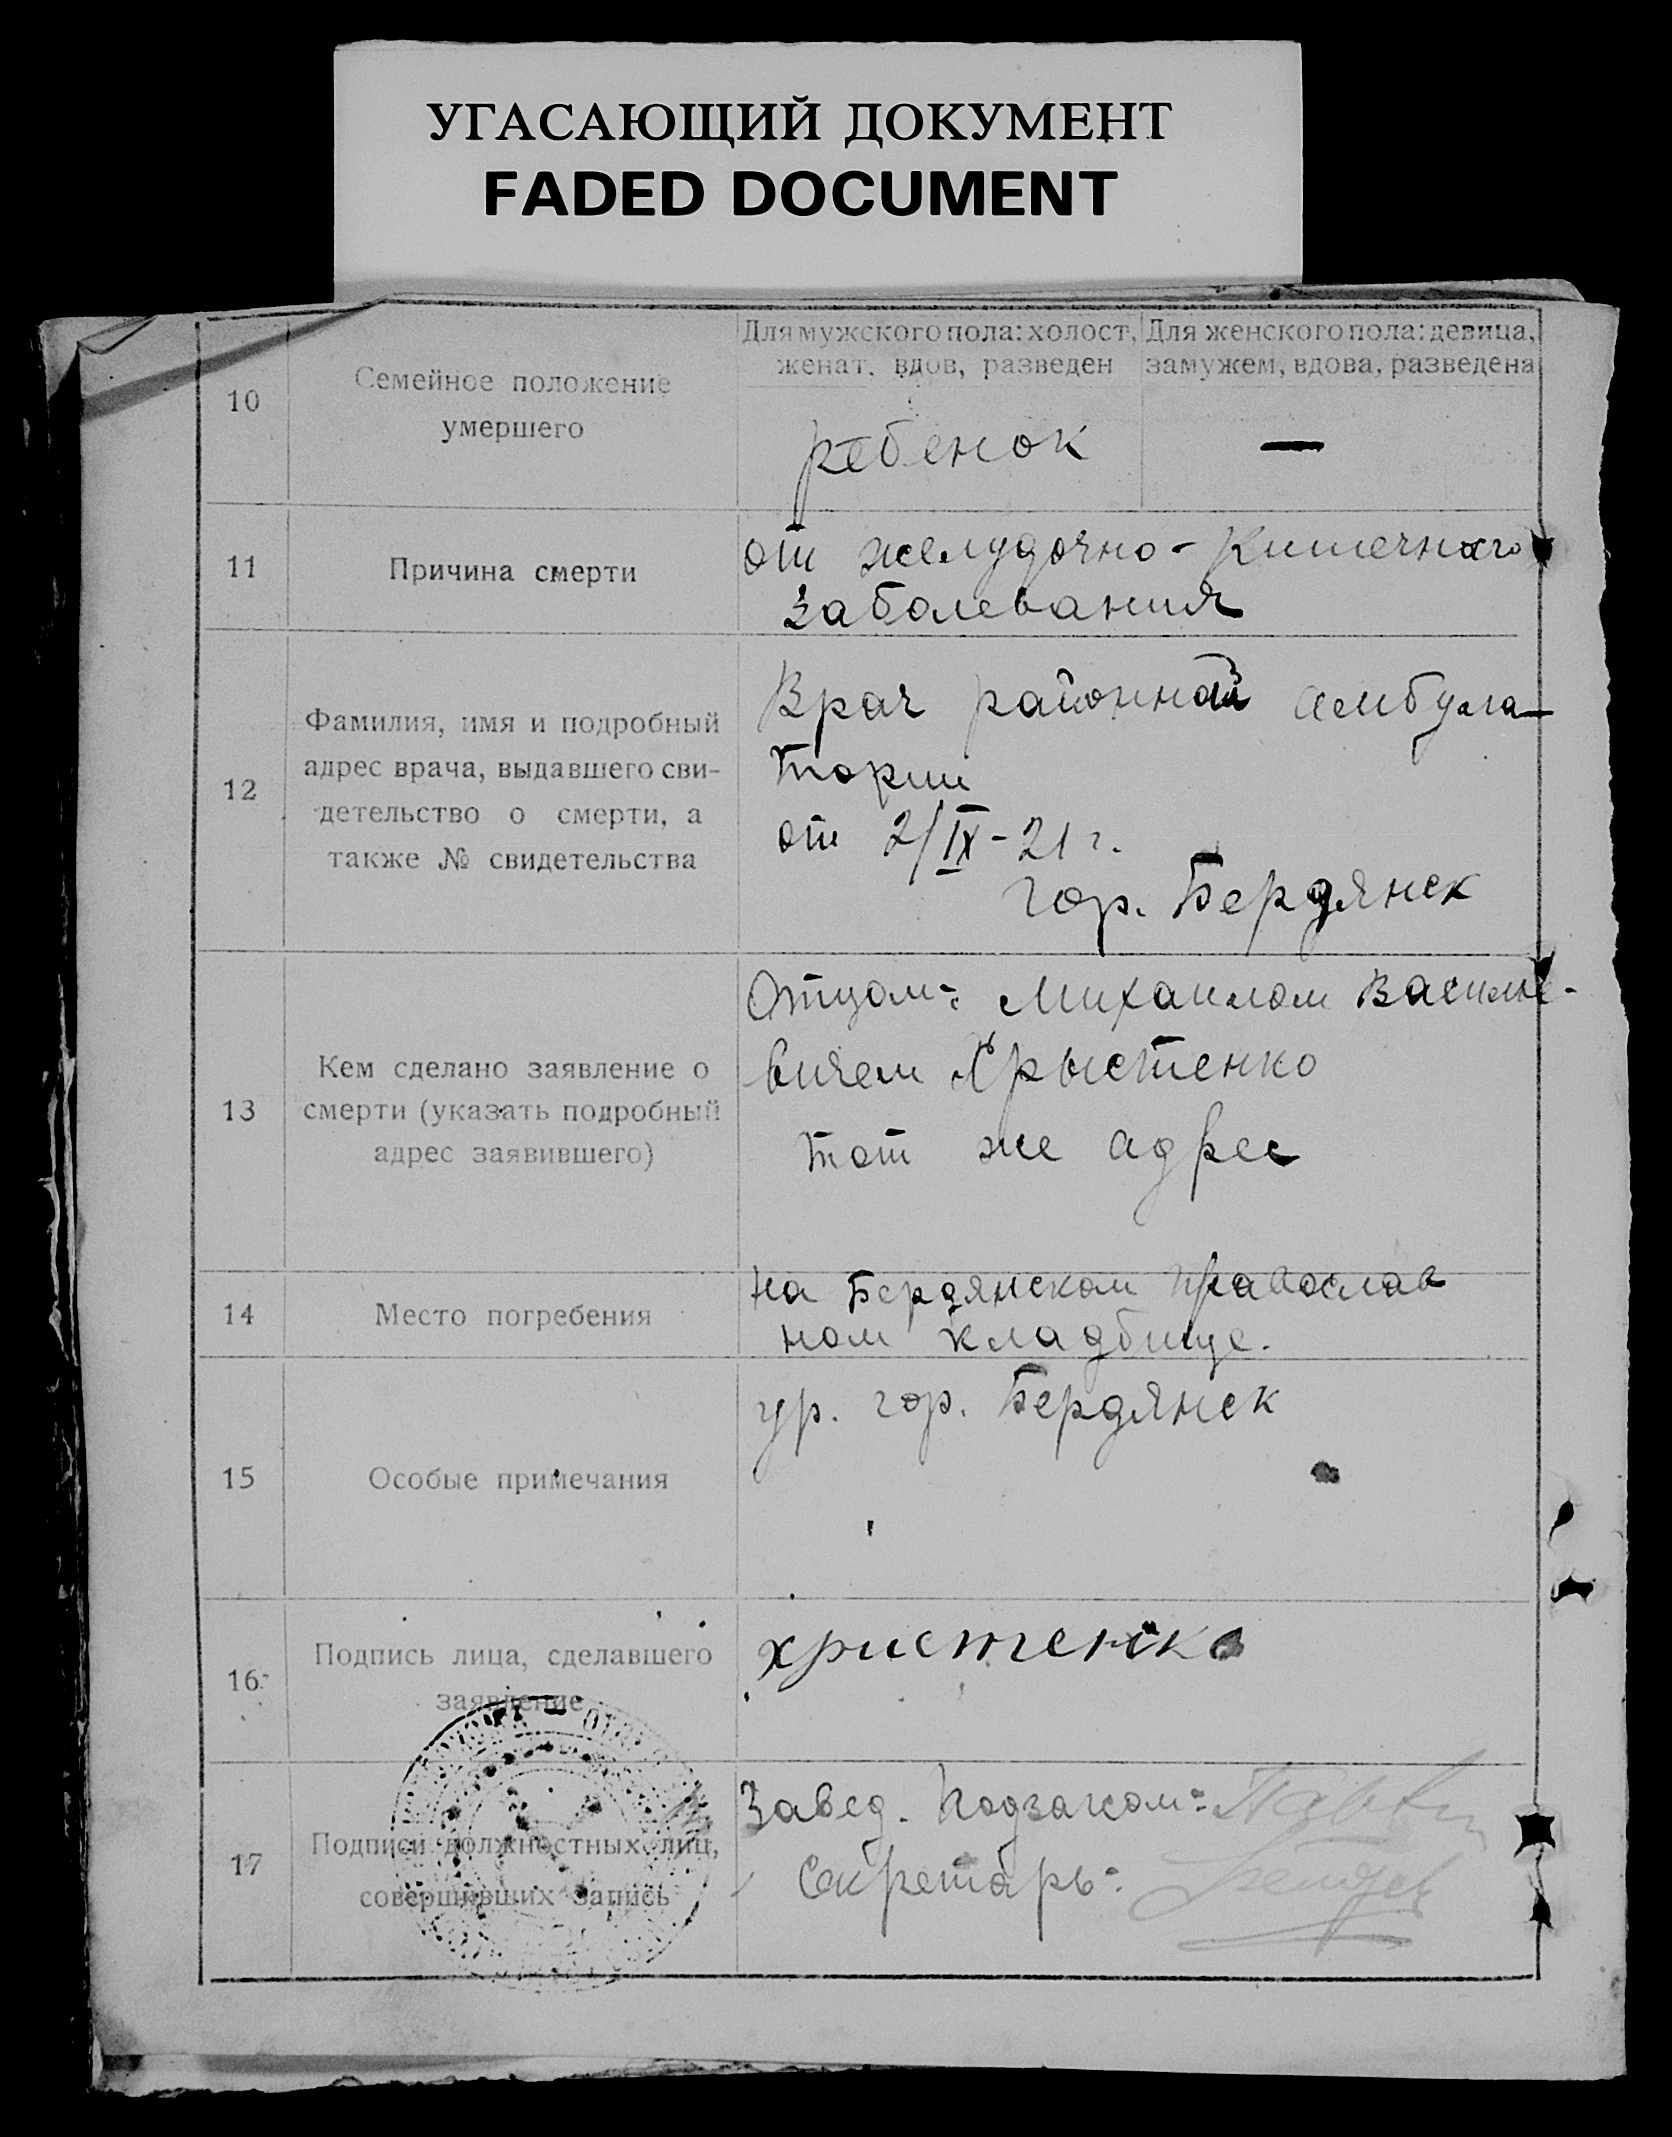 УГАСАЮЩИЙ ДОКУМЕНТ
FADED DOCUMENT
10
Семейное положение
умершего
Для мужского пола: холост,
женат, вдов, разведен
Для женского пола: девица,
замужем, вдова, разведена
ребенок
—
11
Причина смерти
от желудочно-кишечного
заболевания
12
Фамилия, имя и подробный
адрес врача, выдавшего сви-
детельство о смерти, а
также № свидетельства
Врач районной амбула-
тории
от 2/IX-21 г.
гор. Бердянск
13
Кем сделано заявление о
смерти (указать подробный
адрес заявившего)
Отцом: Михаилом Василье-
вичем Хрыстенко
тот же адрес
14
Место погребения
на Бердянском православ
ном кладбище.
15
Особые примечания
ур. гор. Бердянск
16
Подпись лица, сделавшего
заявление
христенко
17
Подписи должностных лиц,
совершивших запись
Завед. Подзагсом:
Секретарь: